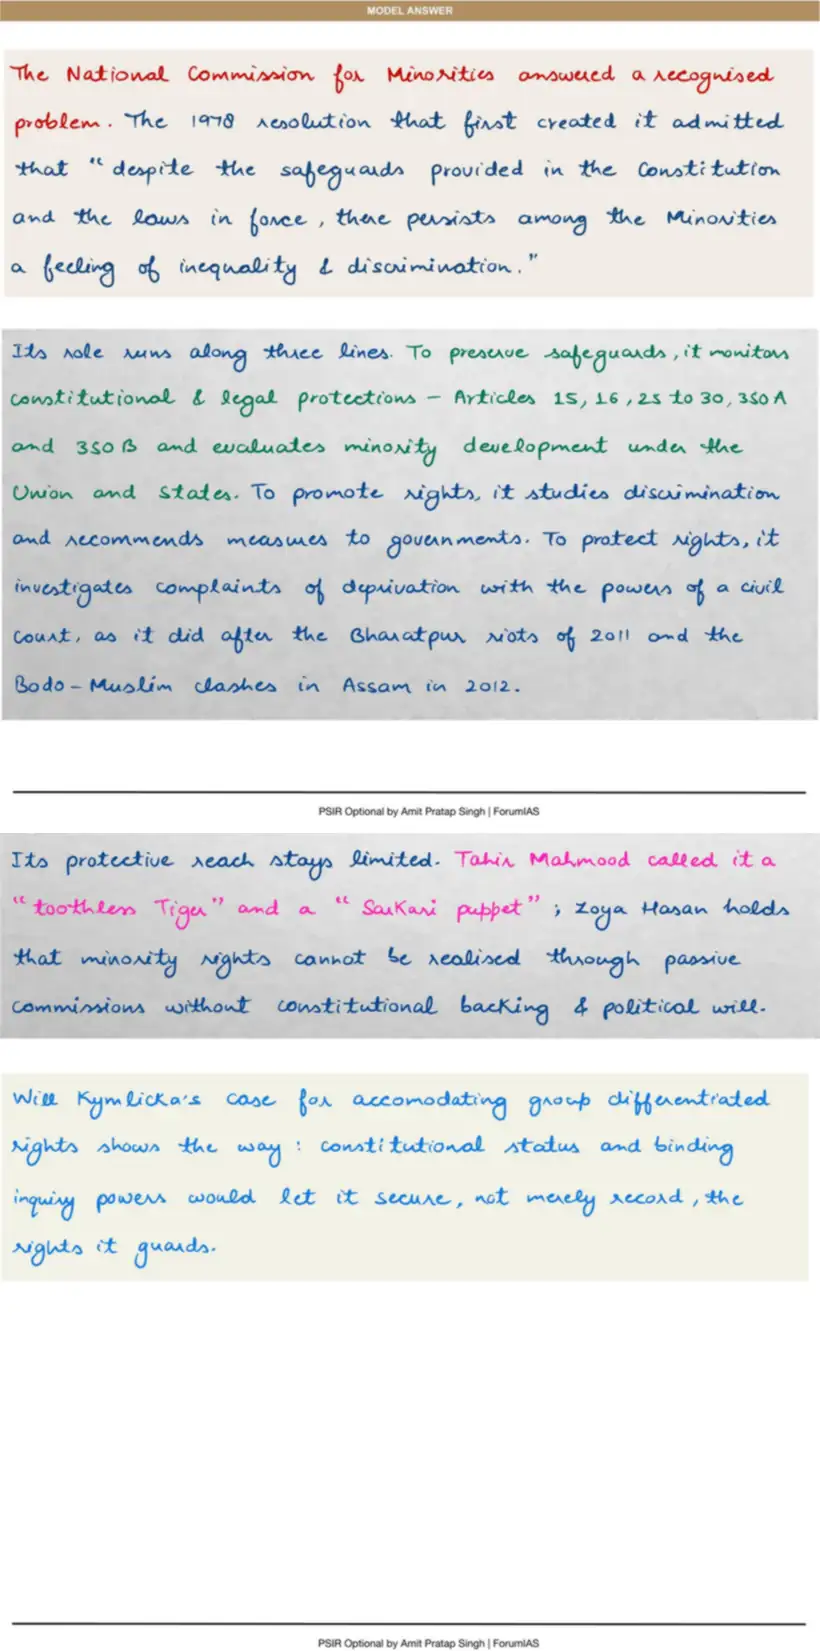 MODEL ANSWER
The National Commission for Minorities answered a recognised
problem. The 1978 resolution that first created it admitted
that "despite the safeguards provided in the Constitution
and the laws in force, there persists among the Minorities
a feeling of inequality & discrimination."
Its role runs along three lines. To preserve safeguards, it monitors
constitutional & legal protections – Articles 15, 16, 25 to 30, 350A
and 350B and evaluates minority development under the
Union and States. To promote rights, it studies discrimination
and recommends measures to governments. To protect rights, it
investigates complaints of deprivation with the powers of a civil
court, as it did after the Bharatpur riots of 2011 and the
Bodo-Muslim clashes in Assam in 2012.
PSIR Optional by Amit Pratap Singh | ForumIAS
Its protective reach stays limited. Tahir Mahmood called it a
"toothless Tiger" and a "Sarkari puppet"; Zoya Hasan holds
that minority rights cannot be realised through passive
commissions without constitutional backing & political will.
Will Kymlicka's case for accomodating group differentiated
rights shows the way: constitutional status and binding
inquiry powers would let it secure, not merely record, the
rights it guards.
PSIR Optional by Amit Pratap Singh | ForumIAS